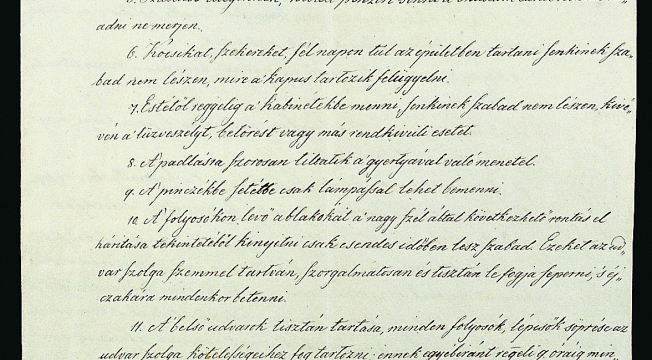 adni ne merjen.
6. Kocsikat, szekereket, fél napon túl az épületben tartani senkinek sza=
bad nem lészen, mire a' kapus tartozik felügyelni.
7. Estétől reggelig a' kabinétekbe menni, senkinek szabad nem lészen, kivé=
vén a' tűzveszélyt, belörést vagy más rendkivüli esetet.
8. A' padlásra szorosan tiltatik a' gyertyával való menetel.
9. A' pinczékbe setétbe csak lámpással lehet bemenni.
10. A' folyosókon levő ablakokat a' nagy szél által következhető rontás el
háritása tekéntetéből kinyitni csak csendes időben lesz szabad. Ezeket az ud=
var szolga szemmel tartván, szorgalmatosan és tisztán le fogja seperni, 's éj=
czakára mindenkor betenni.
11. A' belső udvarok tisztán tartása, minden folyosók, lépcsők söprése az
udvar szolga kötelességeihez fog tartozni: ennek egyebiránt regeli 6 óráig min,